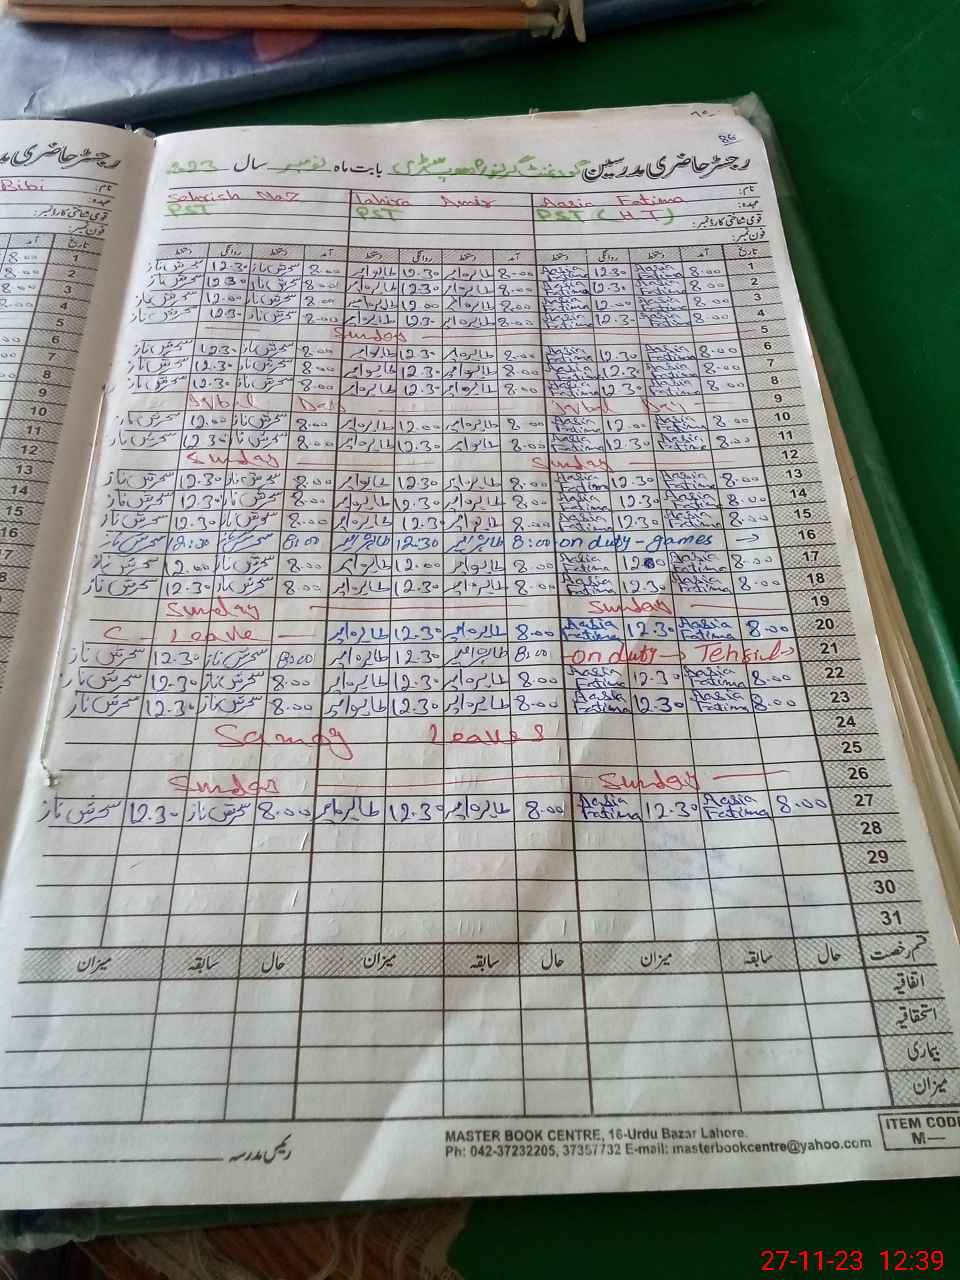 رجسٹر حاضری مدرسین گورنمنٹ گرلز بابت ماہ نومبر سال
نام: Aasia Fatima Tahira Amir Sehrish Naz
عہدہ: PST (H T) PST PST
قومی شناختی کارڈ نمبر:
فون نمبر:
تاریخ آمد دستخط روانگی دستخط آمد دستخط روانگی دستخط آمد دستخط روانگی دستخط
1 8.00 Aasia Fatima 12.30 Aasia Fatima 8.00 طاہرہ امیر 12.30 طاہرہ امیر 8.00 سحرش ناز 12.30 سحرش ناز
2 8.00 Aasia Fatima 12.30 Aasia Fatima 8.00 طاہرہ امیر 12.30 طاہرہ امیر 8.00 سحرش ناز 12.30 سحرش ناز
3 8.00 Aasia Fatima 12.00 Aasia Fatima 8.00 طاہرہ امیر 12.00 طاہرہ امیر 8.00 سحرش ناز 12.00 سحرش ناز
4 8.00 Aasia Fatima 12.30 Aasia Fatima 8.00 طاہرہ امیر 12.30 طاہرہ امیر 8.00 سحرش ناز 12.30 سحرش ناز
5 Sunday
6 8.00 Aasia Fatima 12.30 Aasia Fatima 8.00 طاہرہ امیر 12.30 طاہرہ امیر 8.00 سحرش ناز 12.30 سحرش ناز
7 8.00 Aasia Fatima 12.30 Aasia Fatima 8.00 طاہرہ امیر 12.30 طاہرہ امیر 8.00 سحرش ناز 12.30 سحرش ناز
8 8.00 Aasia Fatima 12.30 Aasia Fatima 8.00 طاہرہ امیر 12.30 طاہرہ امیر 8.00 سحرش ناز 12.30 سحرش ناز
9 Iqbal Day Iqbal Day
10 8.00 Aasia Fatima 12.00 Aasia Fatima 8.00 طاہرہ امیر 12.00 طاہرہ امیر 8.00 سحرش ناز 12.00 سحرش ناز
11 8.00 Aasia Fatima 12.30 Aasia Fatima 8.00 طاہرہ امیر 12.30 طاہرہ امیر 8.00 سحرش ناز 12.30 سحرش ناز
12 Sunday Sunday
13 8.00 Aasia Fatima 12.30 Aasia Fatima 8.00 طاہرہ امیر 12.30 طاہرہ امیر 8.00 سحرش ناز 12.30 سحرش ناز
14 8.00 Aasia Fatima 12.30 Aasia Fatima 8.00 طاہرہ امیر 12.30 طاہرہ امیر 8.00 سحرش ناز 12.30 سحرش ناز
15 8.00 Aasia Fatima 12.30 Aasia Fatima 8.00 طاہرہ امیر 12.30 طاہرہ امیر 8.00 سحرش ناز 12.30 سحرش ناز
16 on duty - games 8:00 طاہرہ امیر 12.30 طاہرہ امیر 8:00 سحرش ناز 12:30 سحرش ناز
17 8.00 Aasia Fatima 12.00 Aasia Fatima 8.00 طاہرہ امیر 12.00 طاہرہ امیر 8.00 سحرش ناز 12.00 سحرش ناز
18 8.00 Aasia Fatima 12.30 Aasia Fatima 8.00 طاہرہ امیر 12.30 طاہرہ امیر 8.00 سحرش ناز 12.30 سحرش ناز
19 Sunday Sunday
20 8.00 Aasia Fatima 12.30 Aasia Fatima 8.00 طاہرہ امیر 12.30 طاہرہ امیر C - Leave
21 on duty → Tehsil 8:00 طاہرہ امیر 12.30 طاہرہ امیر 8:00 سحرش ناز 12.30 سحرش ناز
22 8.00 Aasia Fatima 12.30 Aasia Fatima 8.00 طاہرہ امیر 12.30 طاہرہ امیر 8.00 سحرش ناز 12.30 سحرش ناز
23 8.00 Aasia Fatima 12.30 Aasia Fatima 8.00 طاہرہ امیر 12.30 طاہرہ امیر 8.00 سحرش ناز 12.30 سحرش ناز
24 Leaves
25
26 Sunday Sunday
27 8.00 Aasia Fatima 12.30 Aasia Fatima 8.00 طاہرہ امیر 12.30 طاہرہ امیر 8.00 سحرش ناز 12.30 سحرش ناز
28
29
30
31
قسم رخصت حال سابقہ میزان حال سابقہ میزان حال سابقہ میزان
اتفاقیہ
استحقاقیہ
بیماری
میزان
رئیس مدرسہ
MASTER BOOK CENTRE, 16-Urdu Bazar Lahore.
Ph: 042-37232205, 37357732 E-mail: masterbookcentre@yahoo.com
ITEM CODE
M—
27-11-23 12:39